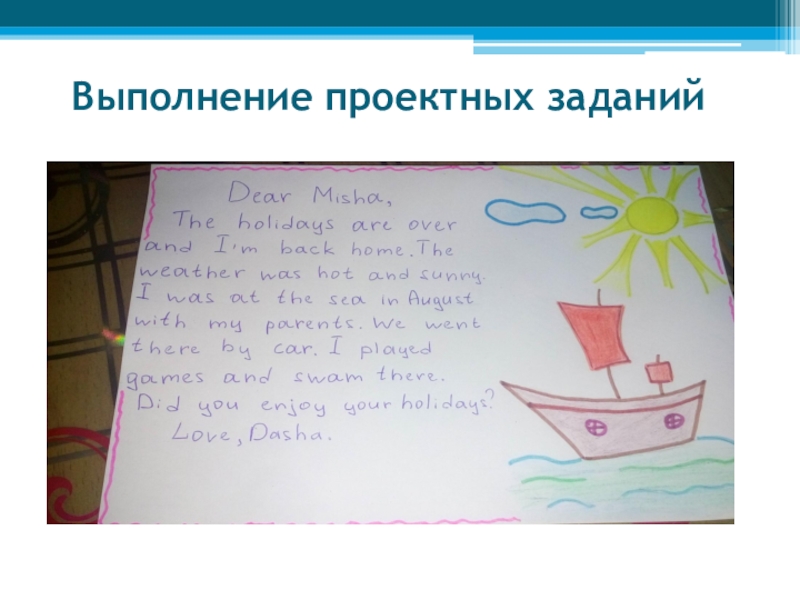 Выполнение проектных заданий
Dear Misha,
The holidays are over
and I'm back home. The
weather was hot and sunny.
I was at the sea in August
with my parents. We went
there by car. I played
games and swam there.
Did you enjoy your holidays?
Love, Dasha.